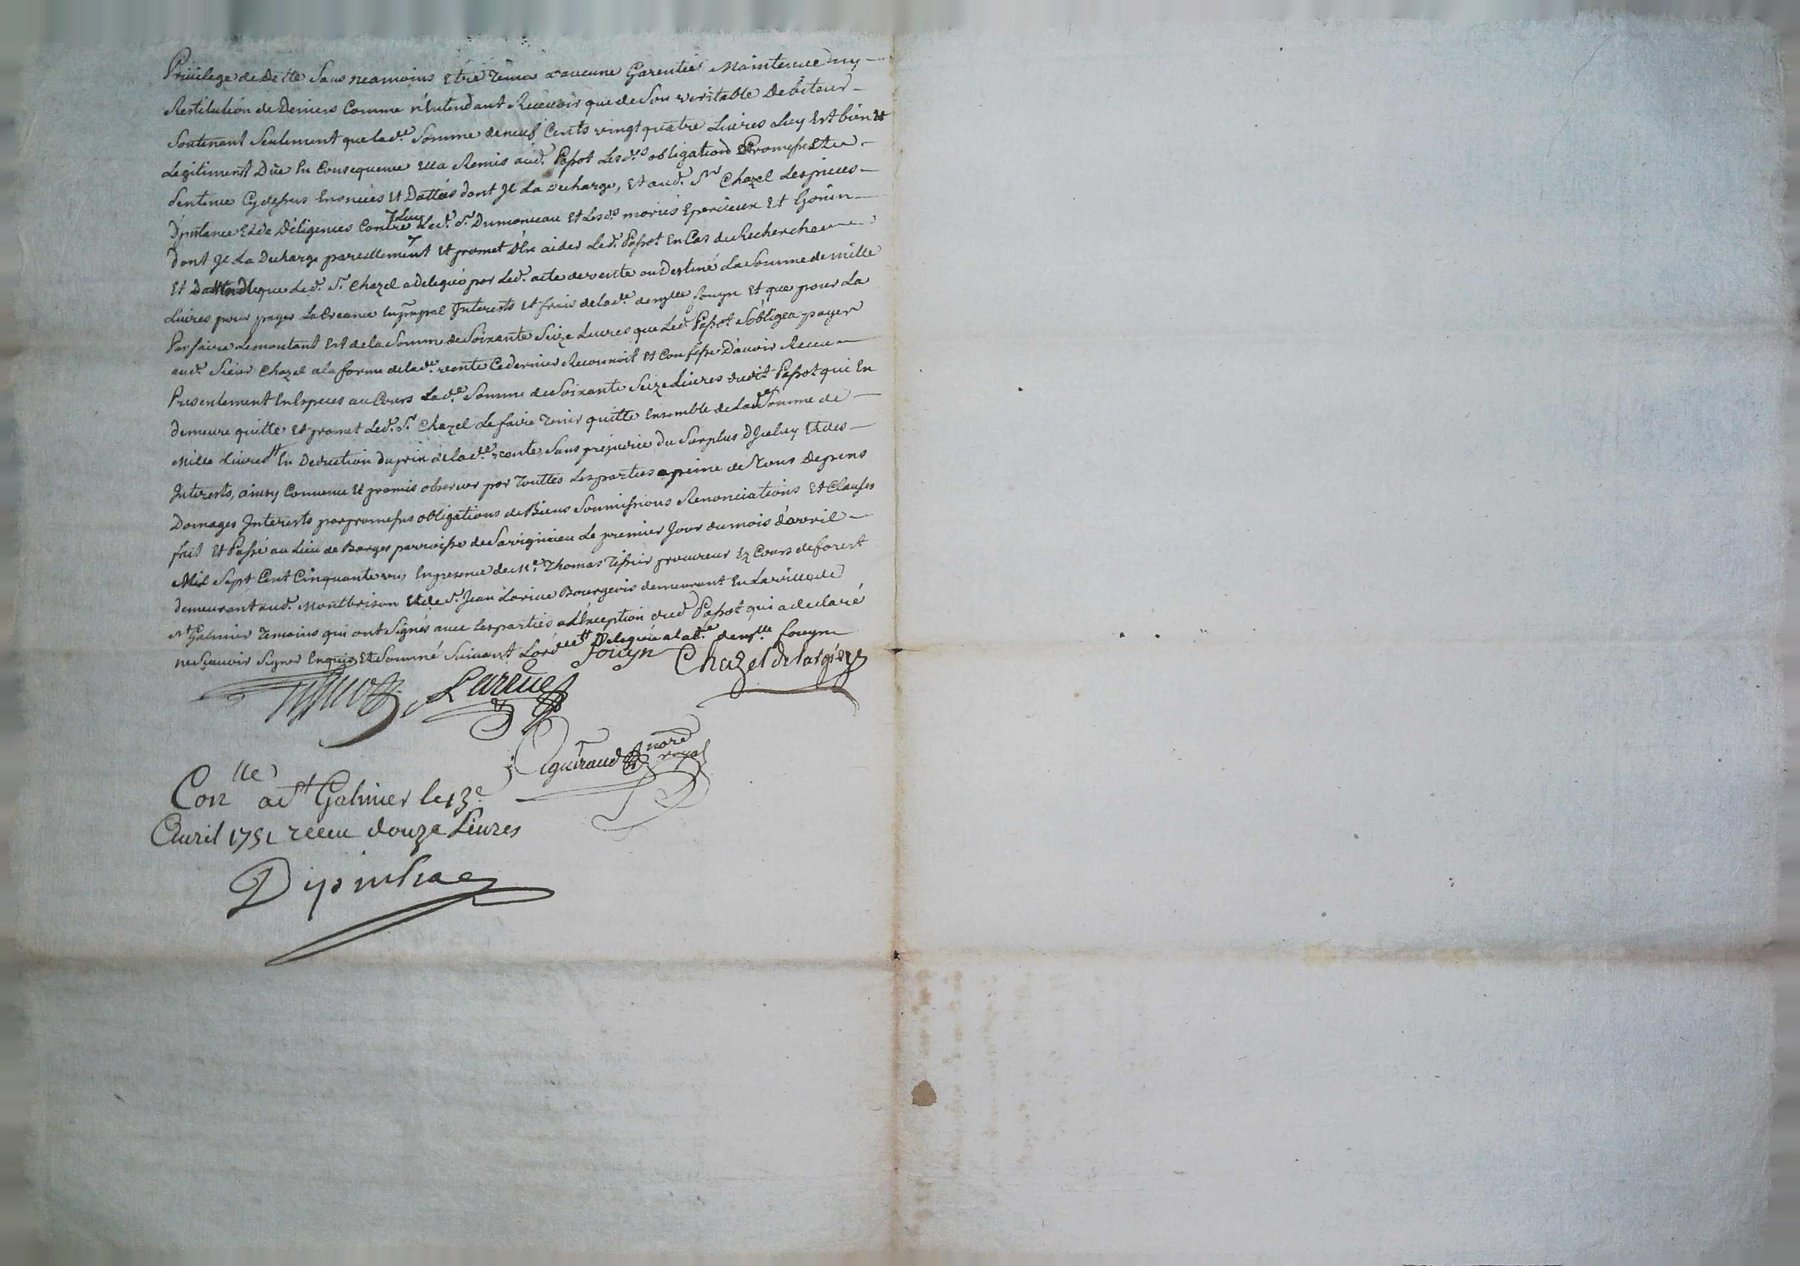 Privilege de Dette sans neamoins Etre Tenu a aucune Garentie Maintenue ny
Restitution de Deniers Comme n'Entendant Recevoir que de Son veritable Debiteur
Soutenant Seulement que lad.e Somme de neuf Cents vingt quatre Livres Luy Est bien Et
Legitiment Düe En Consequence Ella Remis aud. Passot Lesd.es obligations Promesse Et
Sentence Cydessus Enoncées Et Dattées dont Il La Decharge, Et aud. S.r Chazel Les pieces
D'jnstance Et de Diligences Contre Led. S.r Dumonceau Et Lesd. mariés Epercieux Et Gonin
dont Il La Decharge pareillement Et promet d'En aider Led. Passot En Cas de Recherche
Et Dattendu que Led. S.r Chazel a Delegué par Led. acte de vente ou Destiné La Somme de mille
Livres pour payer La Creance Enprin͠pal Interests Et frais de lad.e dem.lle Jouyn Et que pour La
Parfaire Le montant Est de la Somme de Soixante Seize Livres que Led. Passot S'obligea payer
aud. Sieur Chazel a la forme de lad.e vente Ce dernier Reconnoit Et Confesse D'avoir Receu
Presentement En Especes au Cours Lad.e Somme de Soixante Seize Livres dudit Passot qui En
demeure quitte Et promet Led. S.r Chazel Le faire Tenir quitte Ensemble de Lad.e Somme de
Mille Livres En Deduction du prix de lad.e vente Sans prejudice du Surplus D'Jceluy Et des
Interests, ainsy Convenu Et promis observer par Touttes Les parties a peine de Tous Depens
Domages Interests par promesses obligations de Biens Soumissions Renonciations Et Clauses
fait Et Passé au Lieu de Barges parroisse de Savignieu Le premier Jour du mois d'avril
Mil Sept Cent Cinquante un En presence de M.e Thomas Tissier procureur Ez Cours de forest
demeurant aud. Montbrison Et de S.r Jean Larive Bourgeois demeurant En La ville de
S.t Galmier Temoins qui ont Signés avec Les parties a L'Exception dud. Passot qui a declaré
ne Sçavoir Signer Enquis Et Sommé Suivant L'ord.ce Delegué a lad.e dem.lle Jouyn
Jouyn Chazel
Larive
Aguiraud no.re royal
Con.lle a S.t Galmier le 13.e
Avril 1751 receu douze Livres